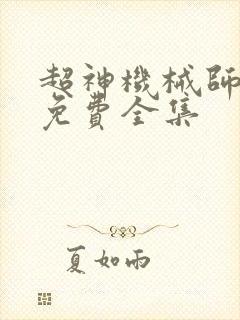 超神機械師
免費全集
夏如雨